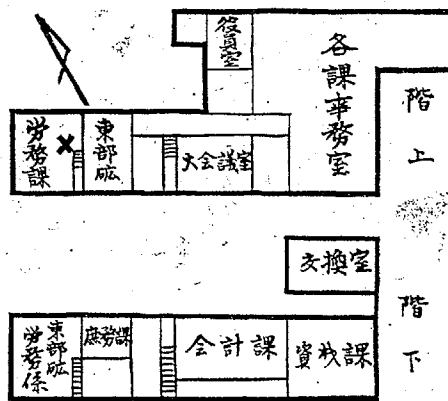 役員室
各課事務室
階上
労務課
×
東部砿
大会議室
交換室
階下
東部砿
労務係
庶務課
会計課
資材課